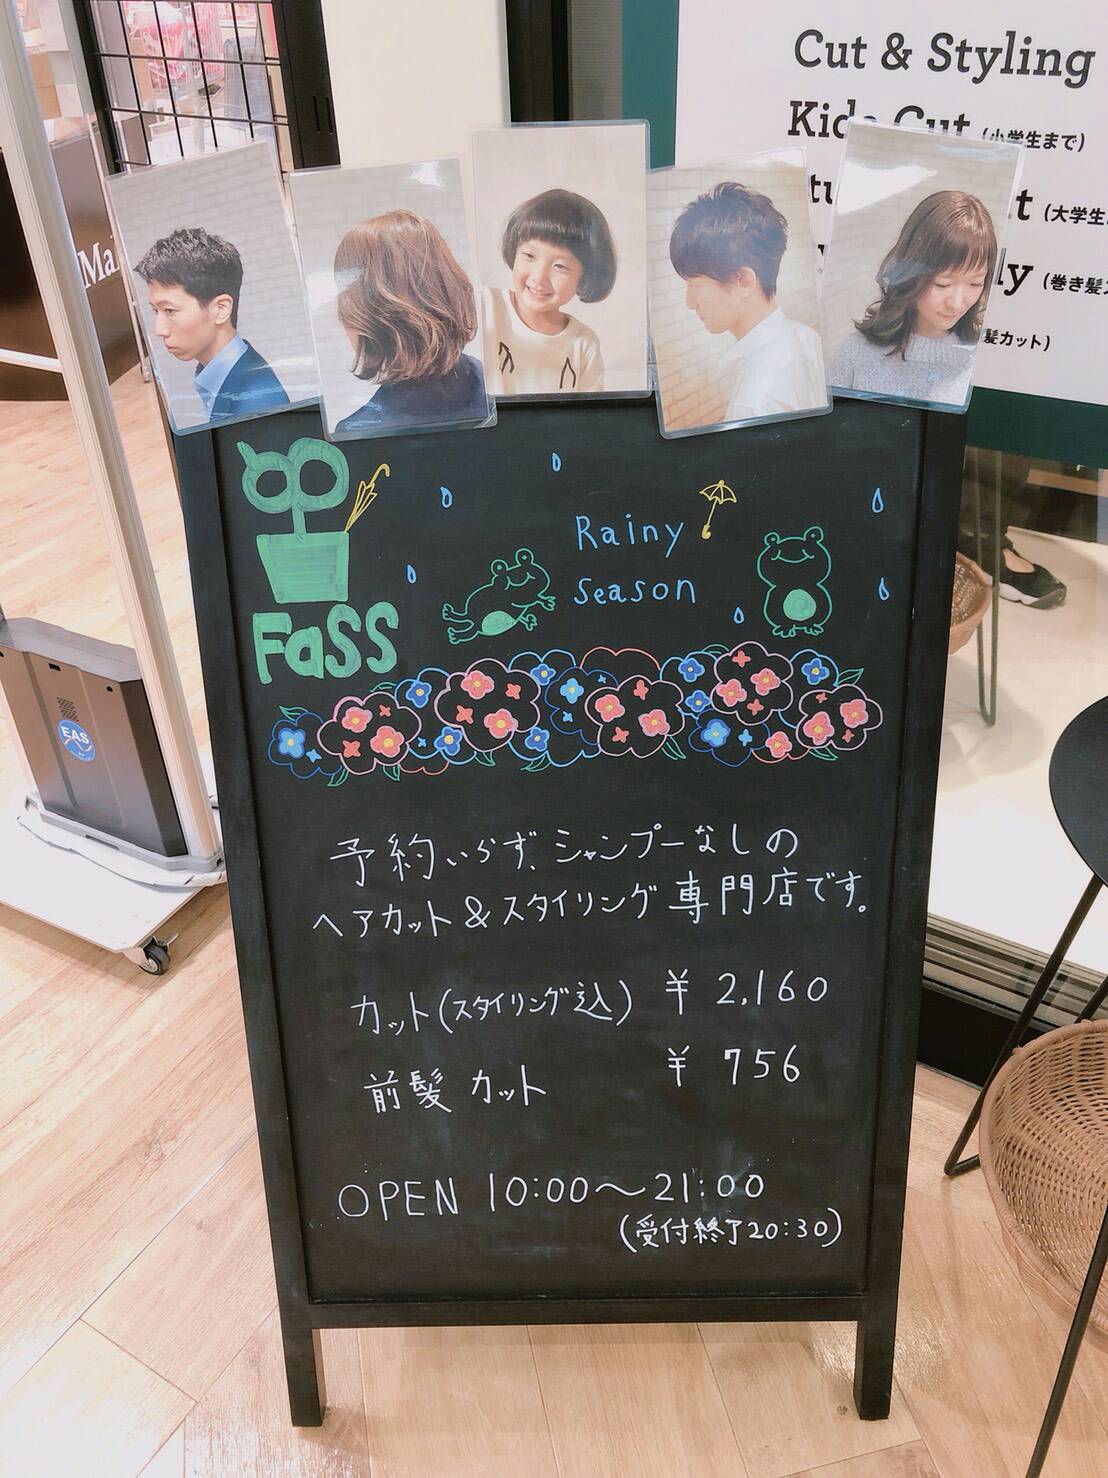 Cut & Styling
(小学生まで)
(大学生
(巻き髪
髪カット)
Ma
EAS
FaSS
Rainy
season
予約いらず、シャンプーなしの
ヘアカット&スタイリング専門店です。
カット(スタイリング込) ¥2,160
前髪カット ¥756
OPEN 10:00〜21:00
(受付終了20:30)